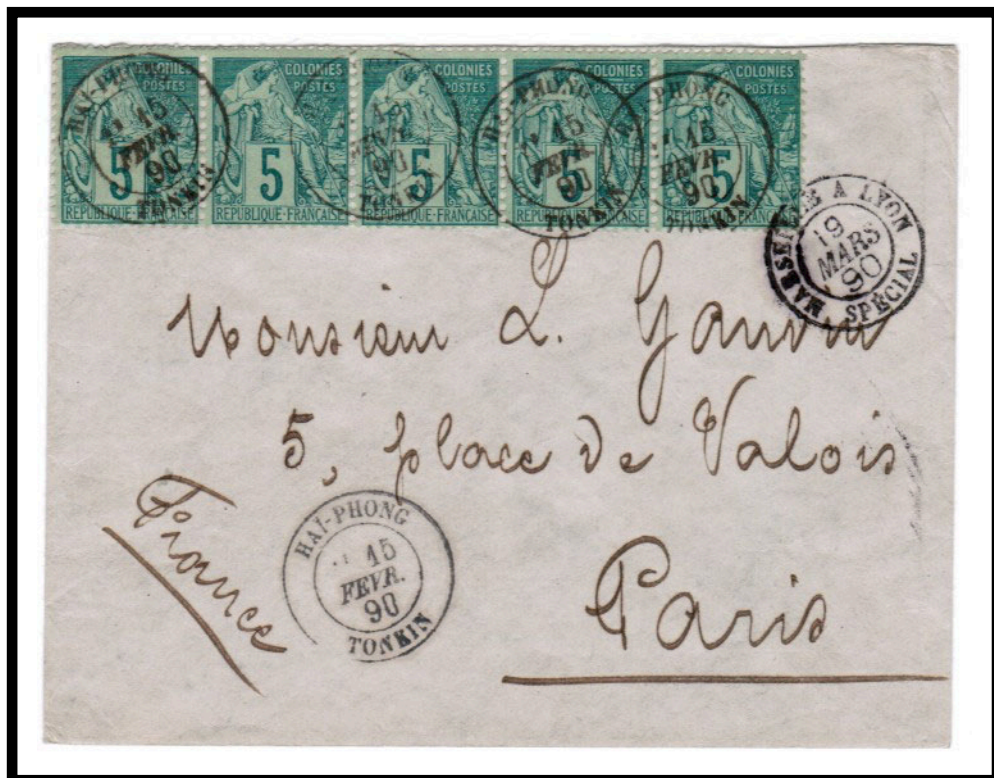 COLONIES POSTES 5 RÉPUBLIQUE-FRANÇAISE
COLONIES POSTES 5 RÉPUBLIQUE-FRANÇAISE
COLONIES POSTES 5 RÉPUBLIQUE-FRANÇAISE
COLONIES POSTES 5 RÉPUBLIQUE-FRANÇAISE
COLONIES POSTES 5 RÉPUBLIQUE-FRANÇAISE
HAÏ-PHONG 15 FEVR. 90 TONKIN
15 FEVR. 90 TONKIN
HAÏ-PHONG 15 FEVR. 90 TONKIN
HAÏ-PHONG 15 FEVR. 90 TONKIN
MARSEILLE A LYON
19
MARS
90
SPÉCIAL
Monsieur L.
5, place de Valois
France
HAÏ-PHONG
15
FEVR.
90
TONKIN
Paris